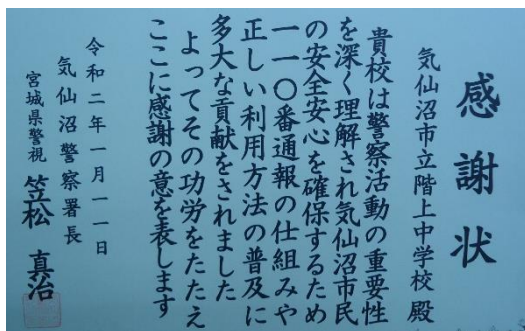 感謝状
気仙沼市立階上中学校 殿
貴校は警察活動の重要性
を深く理解され気仙沼市民
の安全安心を確保するため
一一〇番通報の仕組みや
正しい利用方法の普及に
多大な貢献をされました
よってその功労をたたえ
ここに感謝の意を表します
令和二年一月一一日
気仙沼警察署長
宮城県警視 笠松 真治